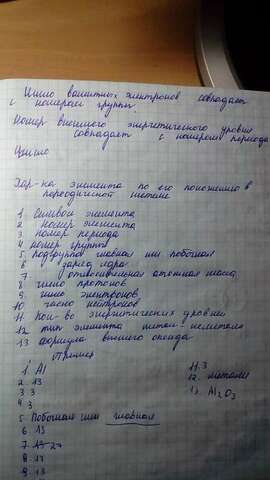 Число валентных электронов совпадает
с номером группы.
Номер внешнего энергетического уровня
совпадает с номером периода
Хар-ка элемента по его положению в
периодической системе
1. Символ элемента
2. Номер элемента
3. номер периода
4. номер группы
5. подгруппа главная или побочная
6. заряд ядра
7. относительная атомная масса
8. число протонов
9. число электронов
10. число нейтронов
11. кол-во энергетических уровней
12. тип элемента метал. неметалл
13. формула высшего оксида
Пример
1. Al
2. 13
3. 3
4. 3
5. Побочная или главная
6. 13
7. 27
8. 13
9. 13
11. 3
12. металл
13. Al2O3